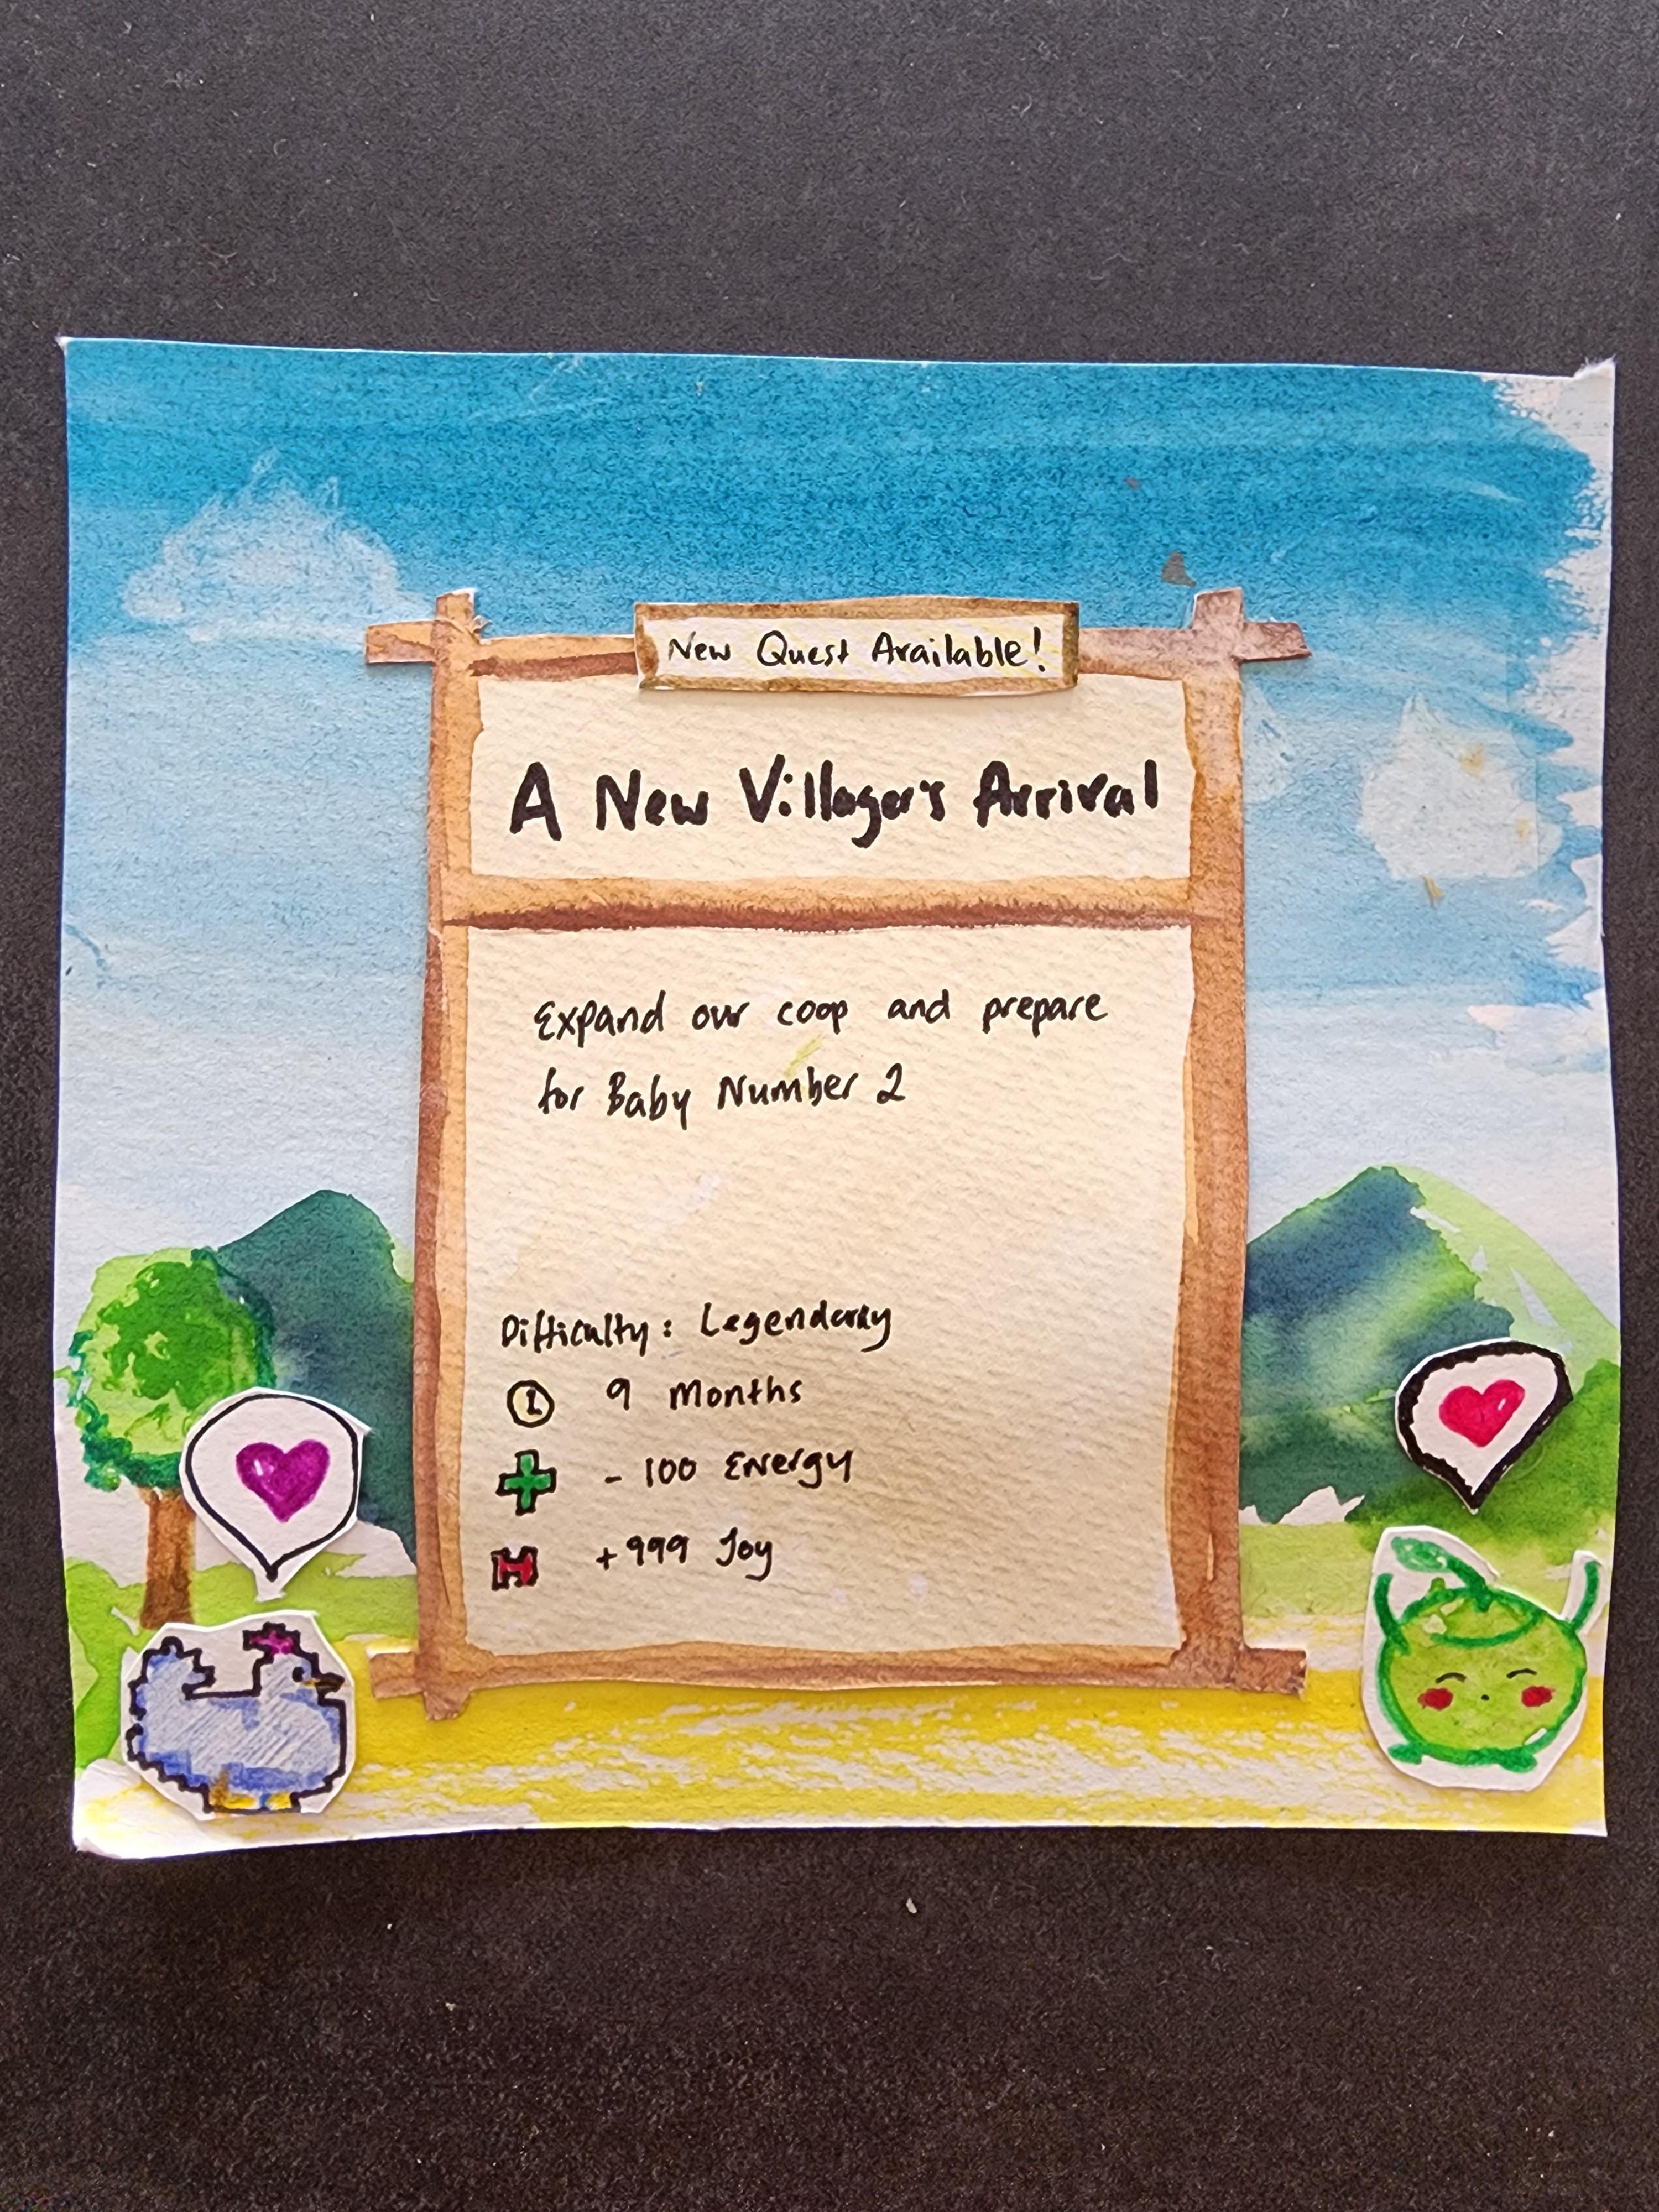 New Quest Available!
A New Villager's Arrival
Expand our coop and prepare
for Baby Number 2
Difficulty: Legendary
9 Months
- 100 Energy
+999 Joy